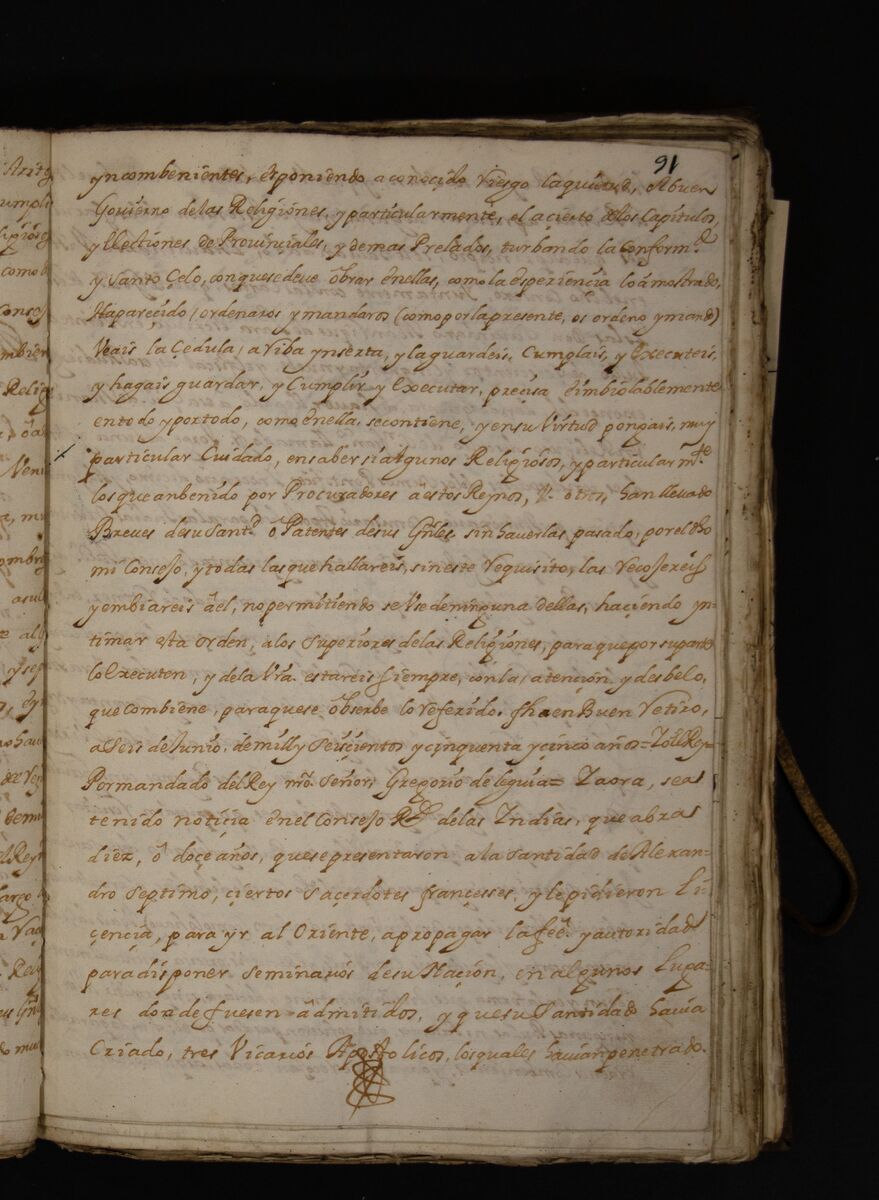 91
yncombenientes, exponiendo a conocido Riesgo la quietud, el buen
Govierno de las Religiones, y particularmente, el acierto de los Capitulos,
y Elecciones de Provinciales, y demas Prelados, turbando la Conform.d
y Santo Çelo, con que se deve obrar en ellas, como la esperiencia lo a mostrado,
Ha pareçido ordenaros y mandaros (como por la presente, os ordeno y mando)
Veais la Çedula, arriba ynserta, y la guardeis, Cumplais, y Executeis,
y hagais guardar, y Cumplir y Executar, preçisa e imbiolablemente
en todo y por todo, como en ella, se contiene, y en su Virtud pongais, muy
particular Cuidado, en saber si algunos Religiosos, y particularm.te
los que an benido por Procuradores a estos Reynos, otros, han llevado
Breves de su Sant.d o Patentes de sus Gñles. sin haverlas pasado, por el dho
mi Consejo, y todas las que hallareis, sin este Requisito, las Recojereis
y embiareis a el, no permitiendo se Use de ninguna dellas, haçiendo yn-
timar esta orden, a los Superiores de las Religiones, para que por su parte
lo Executen, y de la Vra. estareis siempre, con la atencion y desbelo,
que combiene, para que se observe lo Referido. fha en Buen Retiro,
a Seis de Junio, de mill y Seisçientos y cinquenta y çinco años = Yo el Rey =
Por mandado del Rey nro. Señor, Gregorio de leguia = Y aora, se as
tenido notiçia en el Consejo Rl. de las Indias, que abra
diez, o doçe años, que se presentaron a la Santidad de Alexan-
dro Septimo, çiertos Saçerdotes françesses, y le pidieron Li-
çençia, para yr al Oriente, a propagar la fee. y autoridad
para disponer Seminarios de su Naçion, en algunos Luga-
res donde fuesen admitidos, y que su Santidad havia
Criado, tres Vicarios Apostolicos, los quales havian penetrado.